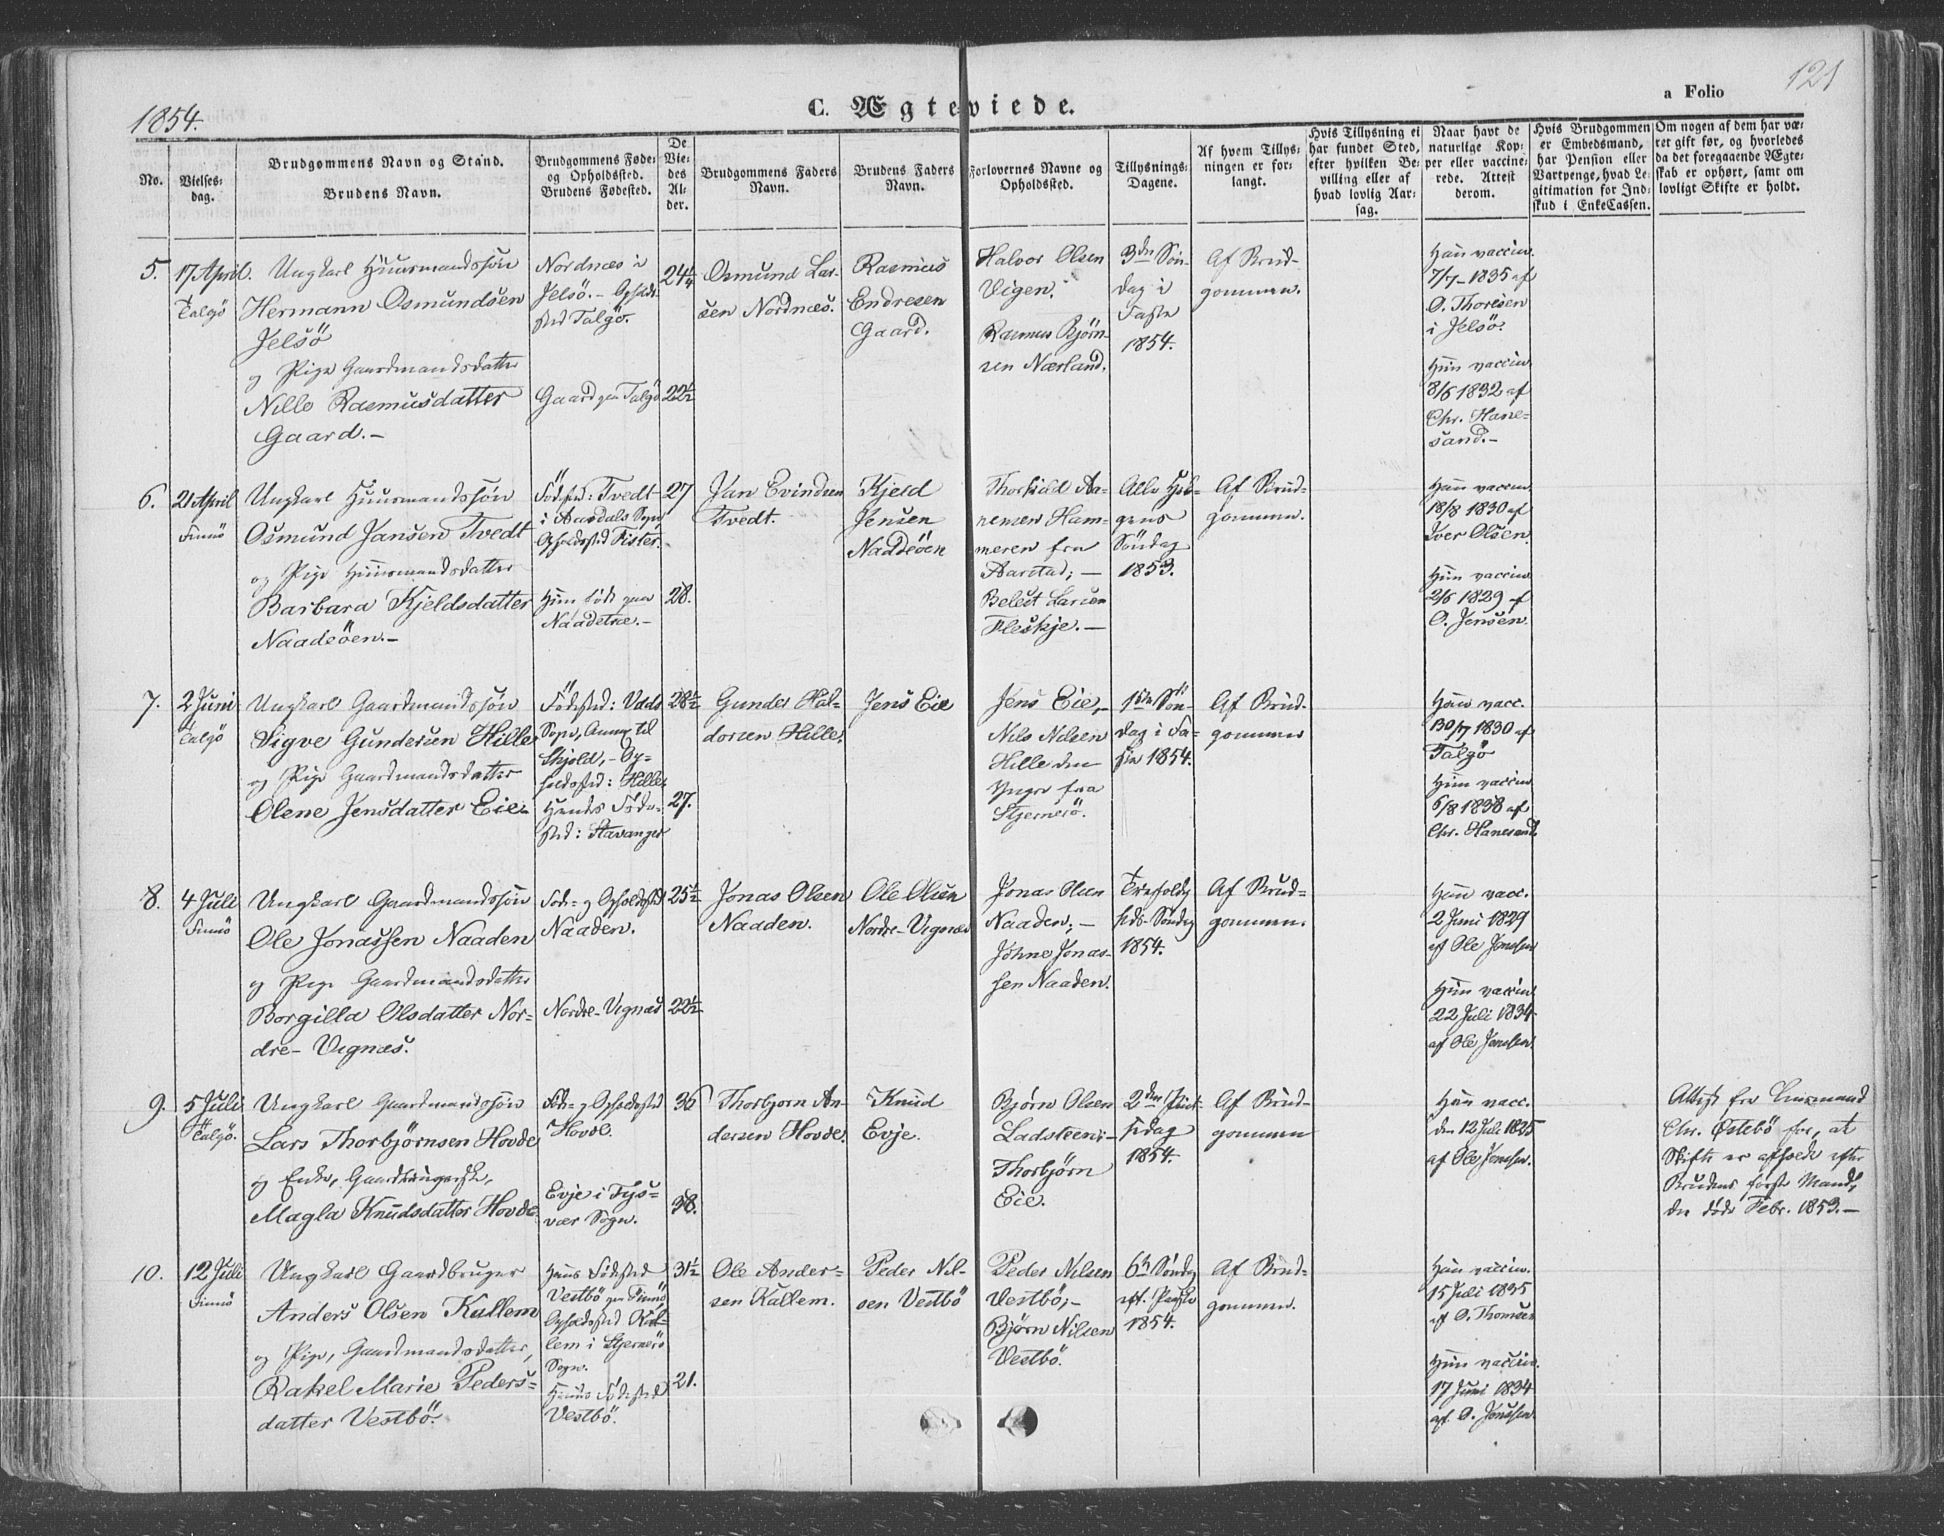 1854.
C. Ægteviede.
a Folio
121
No.
Vielses-
dag.
Brudgommens Navn og Stand.
Brudens Navn.
Brudgommens Føde-
og Opholdssted.
Brudens Fødested.
De
Vie-
des
Al-
der.
Brudgommens Faders
Navn.
Brudens Faders
Navn.
Forlovernes Navne og
Opholdssted.
Tillysnings-
Dagene.
Af hvem Tillys-
ningen er for-
langt.
Hvis Tillysning ei
har fundet Sted,
efter hvilken Be-
villing eller af
hvad lovlig Aar-
sag.
Naar havt de
naturlige Kop-
per eller vaccine-
rede. Attest
derom.
Hvis Brudgommen
er Embedsmand,
har Pension eller
Vartpenge, hvad Le-
gitimation for Ind-
skud i EnkeCassen.
Om nogen af dem har væ-
ret gift før, og hvorledes
da det foregaaende Ægte-
skab er ophørt, samt om
lovligt Skifte er holdt.
5.
17 April.
Talgö
Ungkarl Huusmandssøn
Hermann Osmundsen
Jelsö
og Pige Gaardmandsdatter
Nille Rasmusdatter
Gaard.-
Nordnæs i
Jelsö.- Opholds-
sted Talgö.
Gaard paa Talgö
24¼
22½
Osmund Lar-
sen Nordnæs.
Rasmus
Endresen
Gaard.
Halvor Olsen
Vigen.
Rasmus Bjørn-
sen Nærland.
3die Søn-
dag i
Faste
1854.
Af Brud-
gommen.
Han vaccin.
7/7-1835 af
O. Thoresen
i Jelsö.
Hun vaccin.
8/6 1832 af
Chr. Hane-
sand.-
6.
21 April
Finnö
Ungkarl Huusmandssøn
Osmund Jansen Tvedt
og Pige Huusmandsdatter
Barbara Kjeldsdatter
Naadeöen.-
Födested: Tvedt
i Aardals Sogn
Opholdssted Fister.
Hun född paa
Naadetræ.-
27
28.
Jan Evindsen
Tvedt.
Kjeld
Jensen
Naddeöen
Thorkild Aa-
nensen Ham-
meren fra
Aarstad; -
Belest Larsen
Fleskje. -
Alle Hel-
gens
Söndag
1853.
Af Brud-
gommen.
Han vaccin.
18/8 1830 af
Iver Olsen.
Hun vaccin
2/6 1829 af
O. Jensen.
7.
2 Juni
Talgö
Ungkarl Gaardmandssøn
Sigve Gundersen Hille
og Pige Gaardmandsdatter
Olene Jensdatter Eie.
Födested: Vads
Sogn, Annex til
Skjold, - Op-
holdssted: Hille.
Hendes Föde-
sted: Stavanger
28½
27.
Gunder Hal-
dorsen Hille.
Jens Eie
Jens Eie, -
Nils Nilsen
Hille den
Yngre fra
Stjernerö.
1ste Søn-
dag i Fa-
ste 1854.
Af Brud-
gommen
Han vacc.
30/7 1830 af
Talgö
Hun vaccin
6/8 1838 af
Chr. Hanesand.
8.
4 Juli
Finnö
Ungkarl Gaardmandssøn
Ole Jonassen Naaden
og Pige Gaardmandsdatter
Borgilla Olsdatter Nor-
dre- Vignæs.
Föde- og Opholdssted
Naaden.
Nordre-Vignæs
25½
22½
Jonas Olsen
Naaden.
Ole Olsen
Nordre-Vignæs
Jonas Olsen
Naaden; -
Johne Jonas-
sen Naaden.
Trefoldig-
heds-Söndag
1854.
Af Brud-
gommen.
Han vacc.
2 Juni 1829
af Ole Jonsen
Hun vaccin.
22 Juli 1834
af Ole Jonsen.
9.
5 Juli
Talgö.
Ungkarl Gaardmandssøn
Lars Thorbjörnsen Hovde
og Enke, Gaardbrugerske,
Magla Knudsdatter Hovde.
Föde- og Opholdssted
Hovde.
Evje i Tys-
vær Sogn.
36
38.
Thorbjørn An-
dersen Hovde.
Knud
Evje.
Bjørn Olsen
Ladsteen; -
Thorbjörn
Eie.
2den Pint-
sedag
1854.
Af Brud-
gommen
Han vacc.
den 12 Juli 1825
af Ole Jonsen.
Attest fra Lensmand
Chr. Östebö for, at
Skifte er afholdt efter
Brudens förste Mand,
der döde Febr. 1853.-
10.
12 Juli
Finnö
Ungkarl Gaardbruger
Anders Olsen Kallem
og Pige, Gaardmandsdatter,
Rakel Marie Peders-
datter Vestbö.
Hans Födested
Vestbö paa Finnö
Opholdssted Kal-
lem i Stjernerö
Sogn.
Hendes Födested
Vestbö.
31½
21.
Ole Ander-
sen Kallem.
Peder Nil-
sen Vestbö
Peder Nilsen
Vestbö, -
Björn Nilsen
Vestbö.
6te Söndag
eft. Paaske
1854.
Af Brud-
gommen.
Han vaccin.
15 Juli 1835
af O. Thomsen
Hun vaccin.
17 Juni 1834
af O. Jonsen.